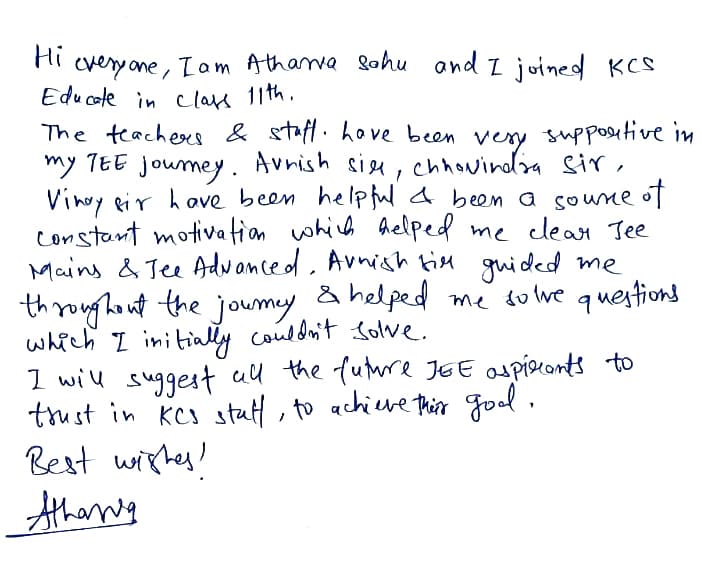 Hi everyone, I am Atharva Sahu and I joined KCS
Educate in class 11th.
The teachers & staff. have been very supportive in
my JEE journey. Avnish sir, chhavindra Sir,
Vinay sir have been helpful & been a source of
constant motivation which helped me clear Jee
Mains & Jee Advanced. Avnish sir guided me
throughout the journey & helped me solve questions
which I initially couldn't solve.
I will suggest all the future JEE aspirants to
trust in KCS staff, to achieve their goal.
Best wishes!
Atharva